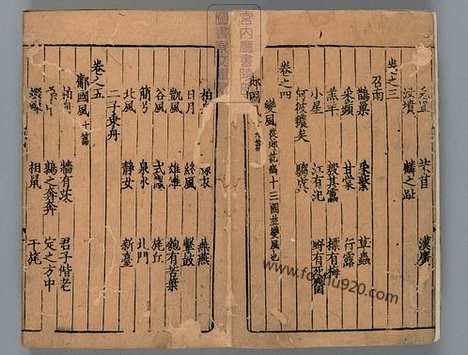 兎罝 芣苢 漢廣
汝墳 麟之趾
卷之三
召南
鵲巢 采蘩 草蟲
采蘋 甘棠 行露
羔羊 殷其靁 摽有梅
小星 江有汜 野有死麕
何彼穠矣 騶虞
卷之四
變風 從邶詫豳十三國並變風也
邶國
柏舟 綠衣 燕燕
日月 終風
凱風 雄雉 匏有苦葉
谷風 式微 旄丘
簡兮 泉水 北門
北風 靜女 新臺
二子乘舟
卷之五
鄘國風 十篇
柏舟 牆有茨 君子偕老
鶉之奔奔 定之方中
相鼠 干旄
宮內廳書陵部
圖書寮文庫
www.foshu920.com